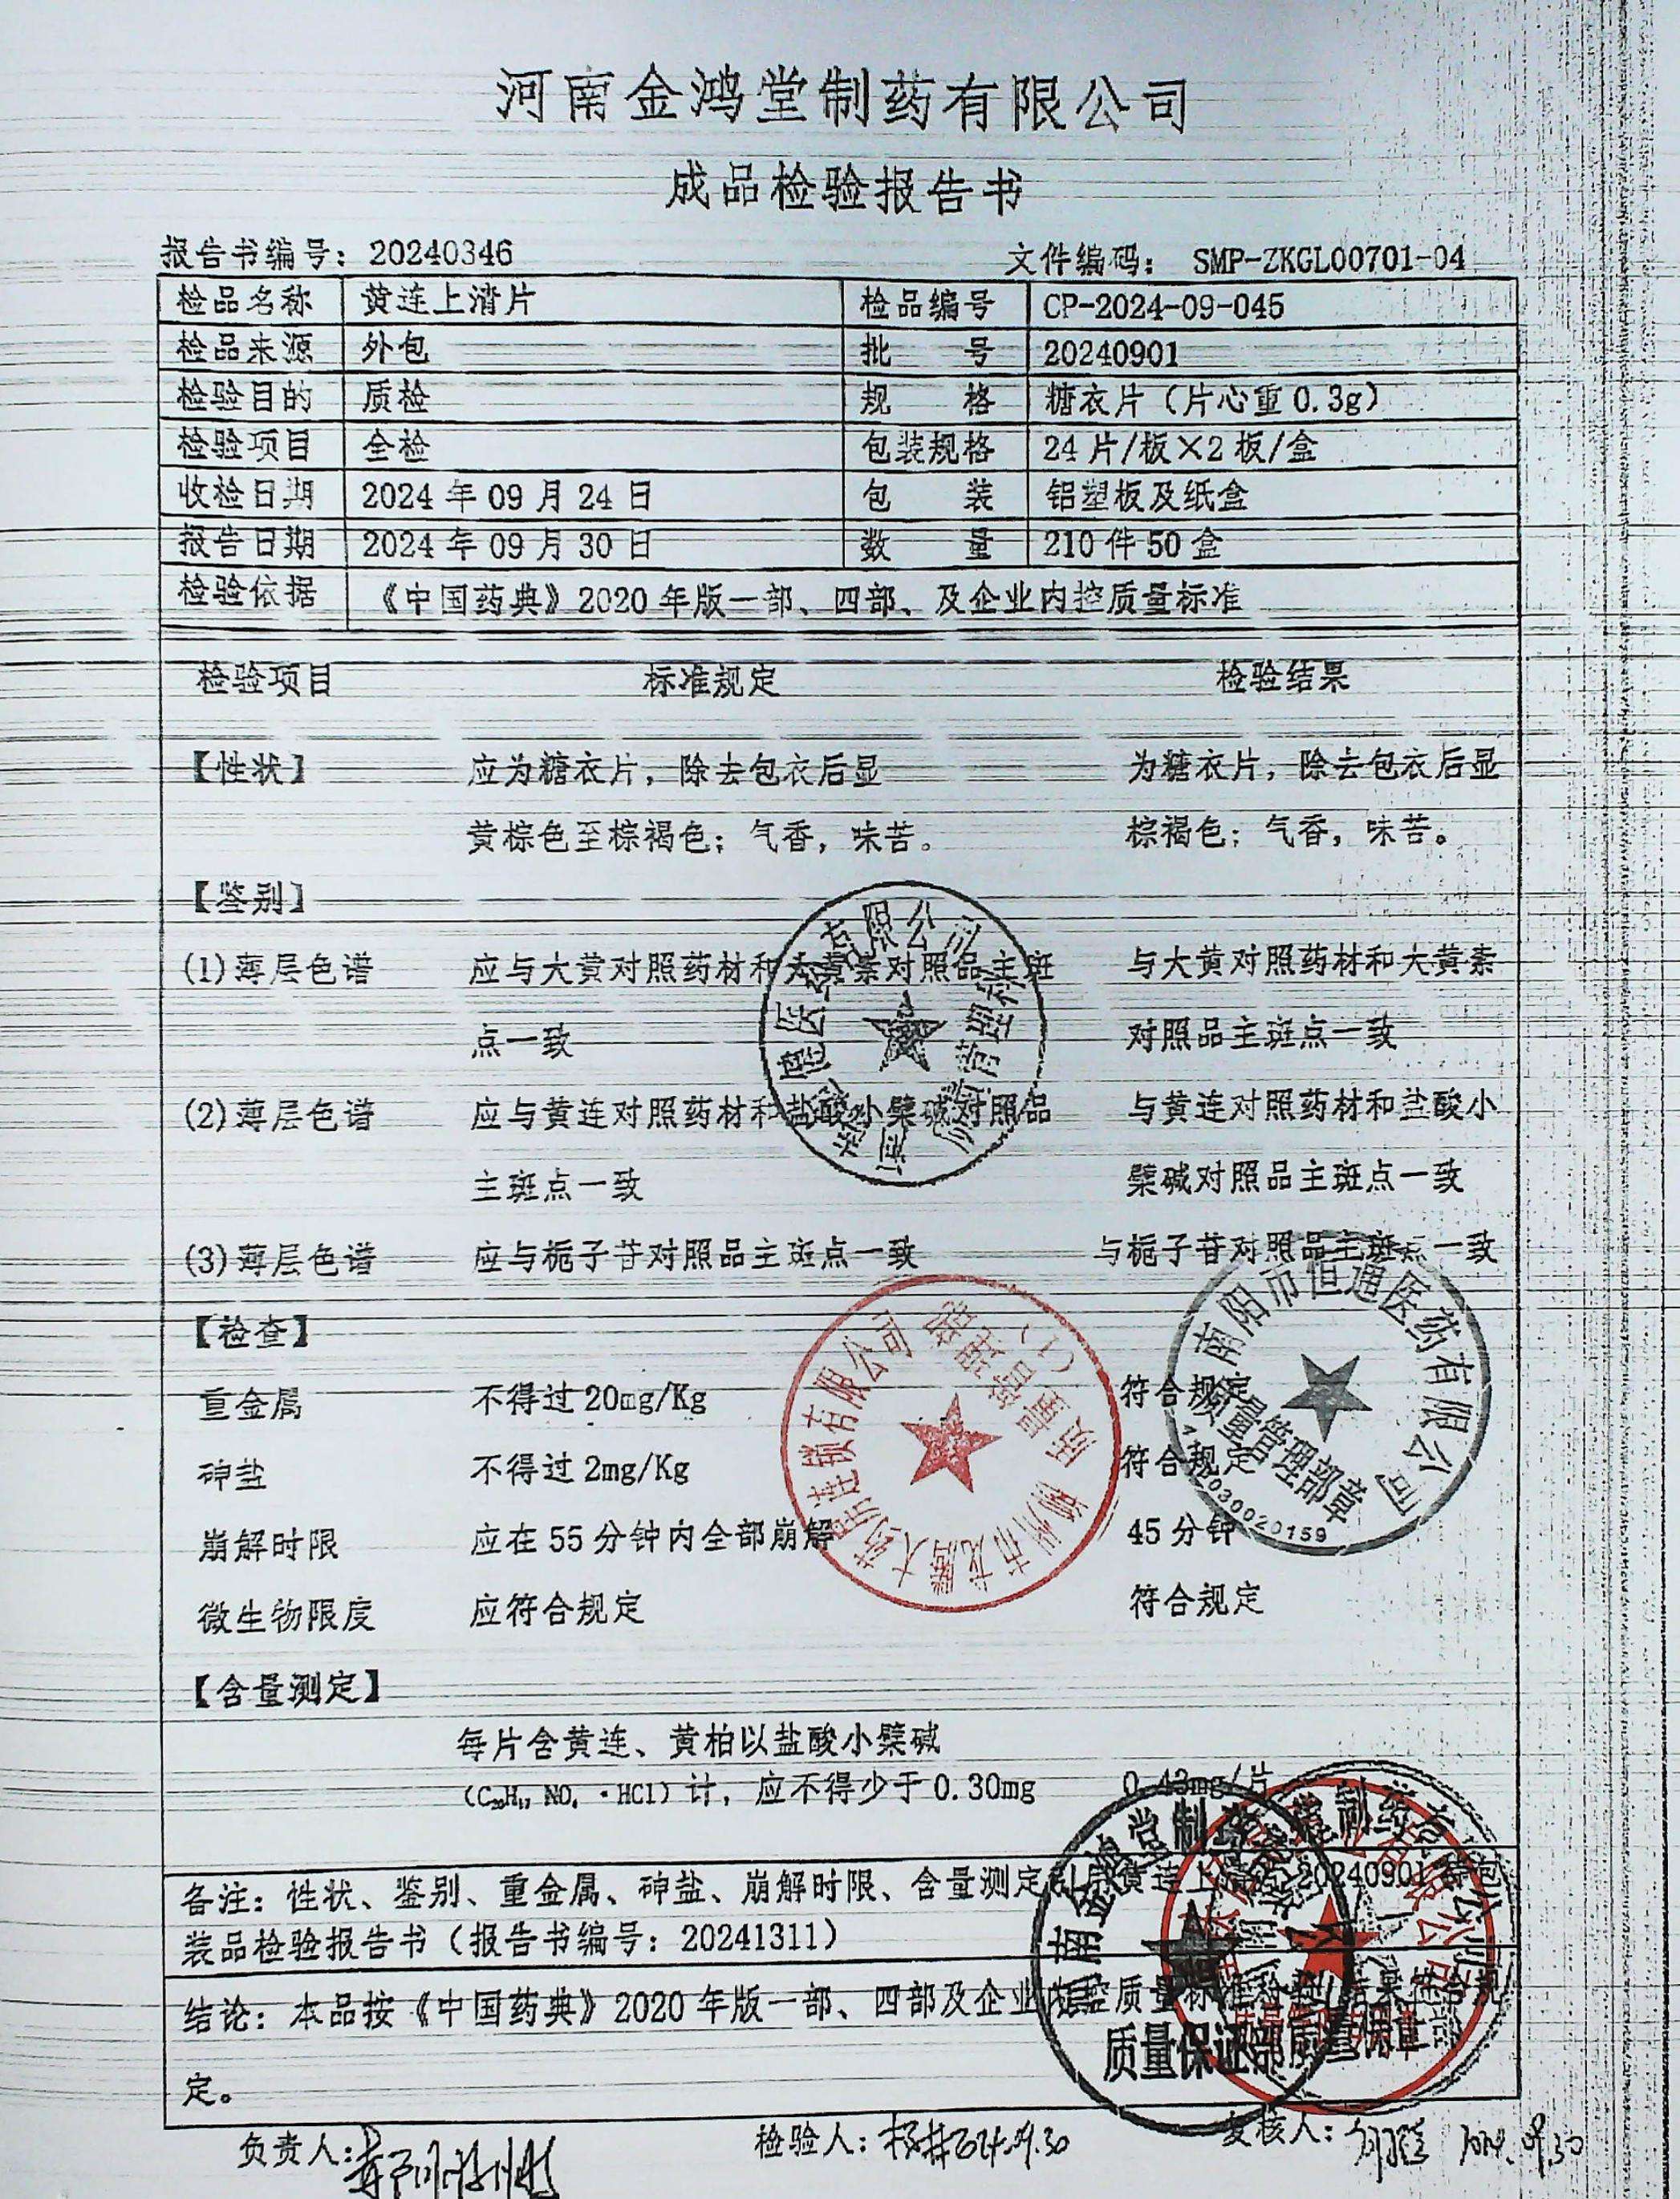 河南金鸿堂制药有限公司
成品检验报告书
报告书编号：20240346 文件编码： SMP-ZKGL00701-04
检品名称 黄连上清片 检品编号 CP-2024-09-045
检品来源 外包 批 号 20240901
检验目的 质检 规 格 糖衣片（片心重0.3g）
检验项目 全检 包装规格 24片/板×2板/盒
收检日期 2024年09月24日 包 装 铝塑板及纸盒
报告日期 2024年09月30日 数 量 210件50盒
检验依据 《中国药典》2020年版一部、四部、及企业内控质量标准
检验项目 标准规定 检验结果
【性状】 应为糖衣片，除去包衣后显 为糖衣片，除去包衣后显
黄棕色至棕褐色；气香，味苦。 棕褐色；气香，味苦。
【鉴别】
(1)薄层色谱 应与大黄对照药材和大黄素对照品主斑 与大黄对照药材和大黄素
点一致 对照品主斑点一致
(2)薄层色谱 应与黄连对照药材和盐酸小檗碱对照品 与黄连对照药材和盐酸小
主斑点一致 檗碱对照品主斑点一致
(3)薄层色谱 应与栀子苷对照品主斑点一致 与栀子苷对照品主斑点一致
【检查】
重金属 不得过20mg/Kg 符合规定
砷盐 不得过2mg/Kg 符合规定
崩解时限 应在55分钟内全部崩解 45分钟
微生物限度 应符合规定 符合规定
【含量测定】
每片含黄连、黄柏以盐酸小檗碱
（C₂₀H₁₇NO₄·HCl）计，应不得少于0.30mg 0.43mg/片
备注：性状、鉴别、重金属、砷盐、崩解时限、含量测定引用黄连上清片20240901待包
装品检验报告书（报告书编号：20241311）
结论：本品按《中国药典》2020年版一部、四部及企业内控质量标准检验，结果符合规
定。
负责人： 检验人： 2024.09.30 复核人： 2024.09.30
南阳市恒通医药有限公司
质量管理部章
柳州市龙腾大药房连锁有限公司
质量管理部
(1)
河南金鸿堂制药有限公司
质量保证部